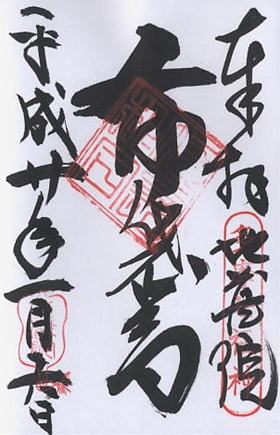 奉拝 地蔵院
布袋尊
平成廿年一月六日